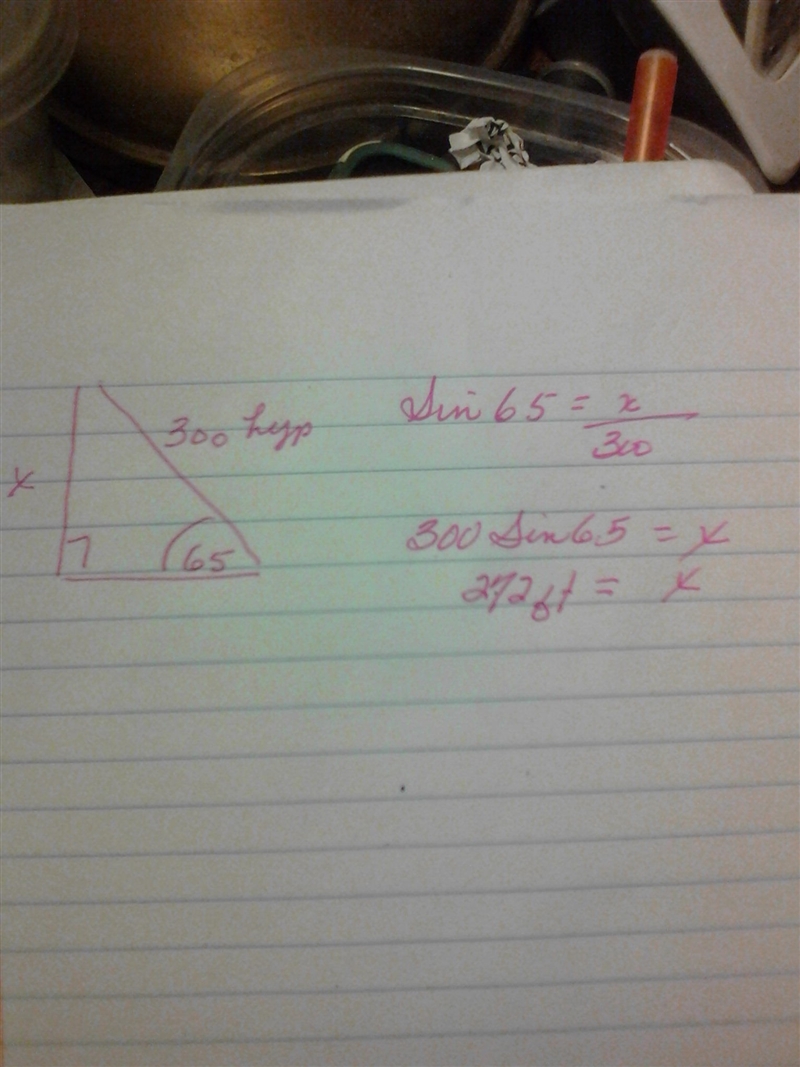 300 hyp
x
65
Sin 65 = x
300
300 Sin 65 = x
272 ft = x